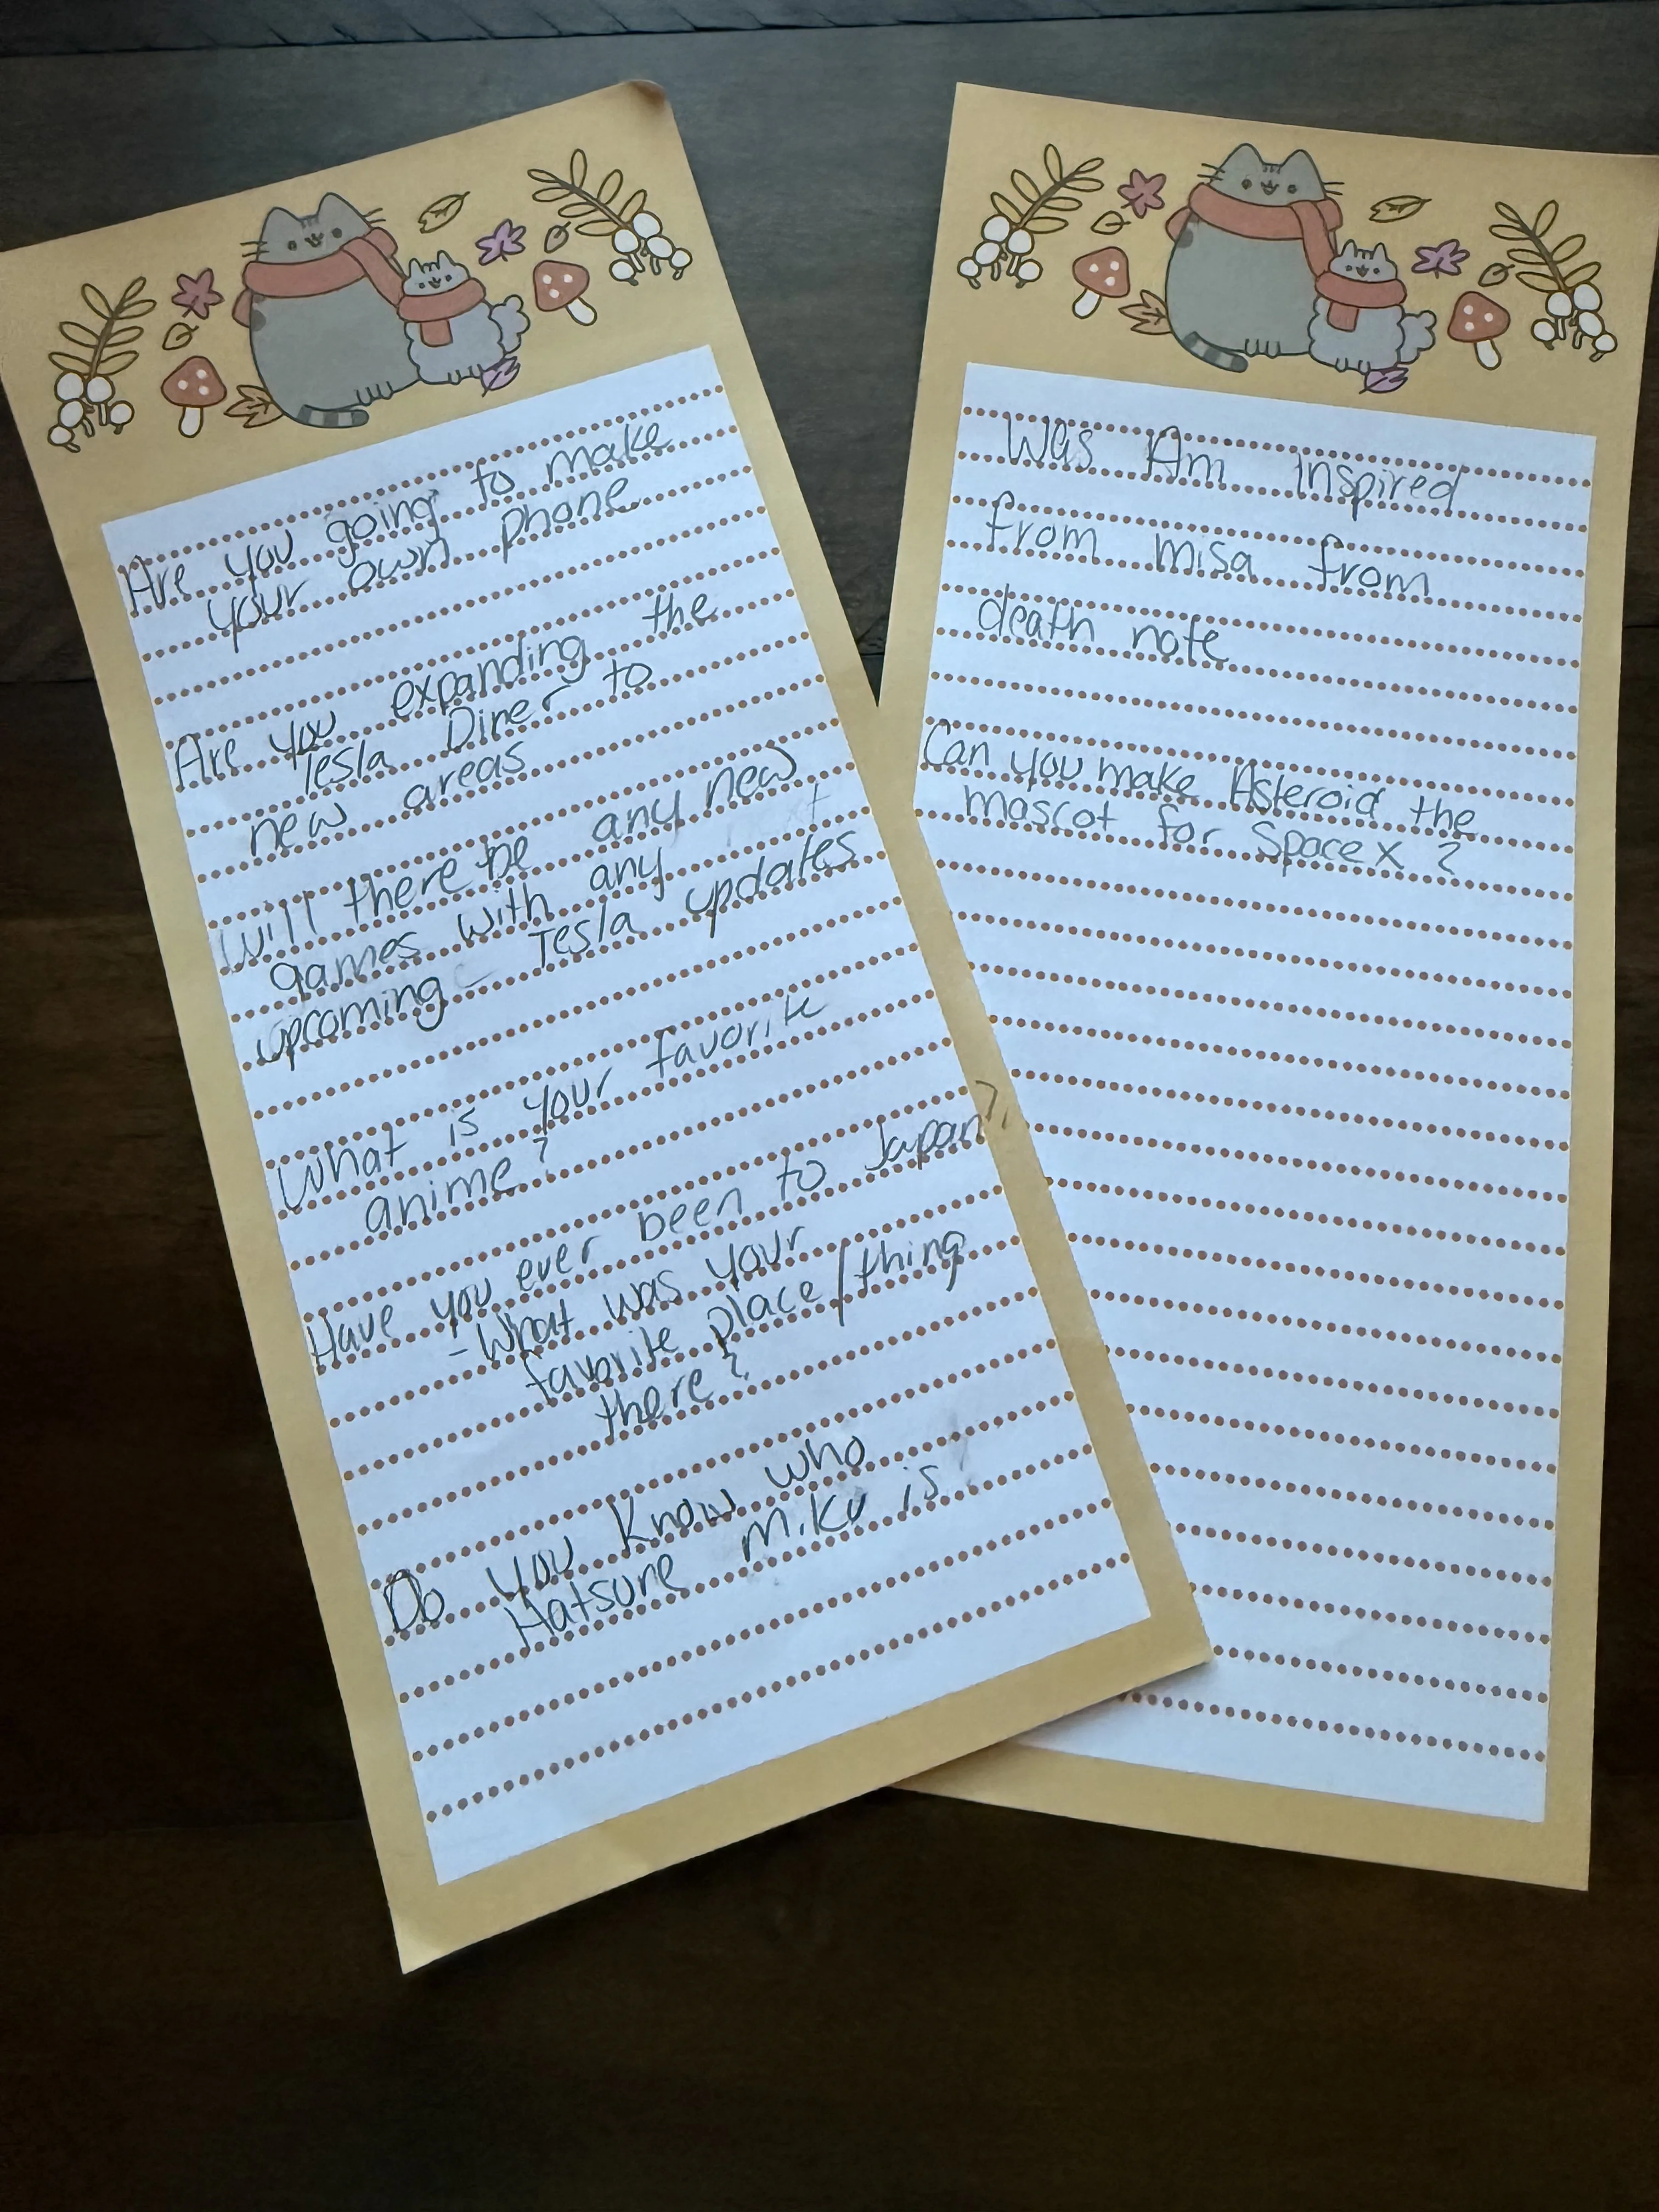 Are you going to make
your own phone
Are you expanding the
Tesla Diner to
new areas
Will there be any new
games with any next
upcoming Tesla updates
What is your favorite
anime?
Have you ever been to Japan?
- What was your
favorite place/thing
there?
Do you know who
Hatsune Miku is
Was Am Inspired
from misa from
death note
Can you make Asteroid the
mascot for Space X ?